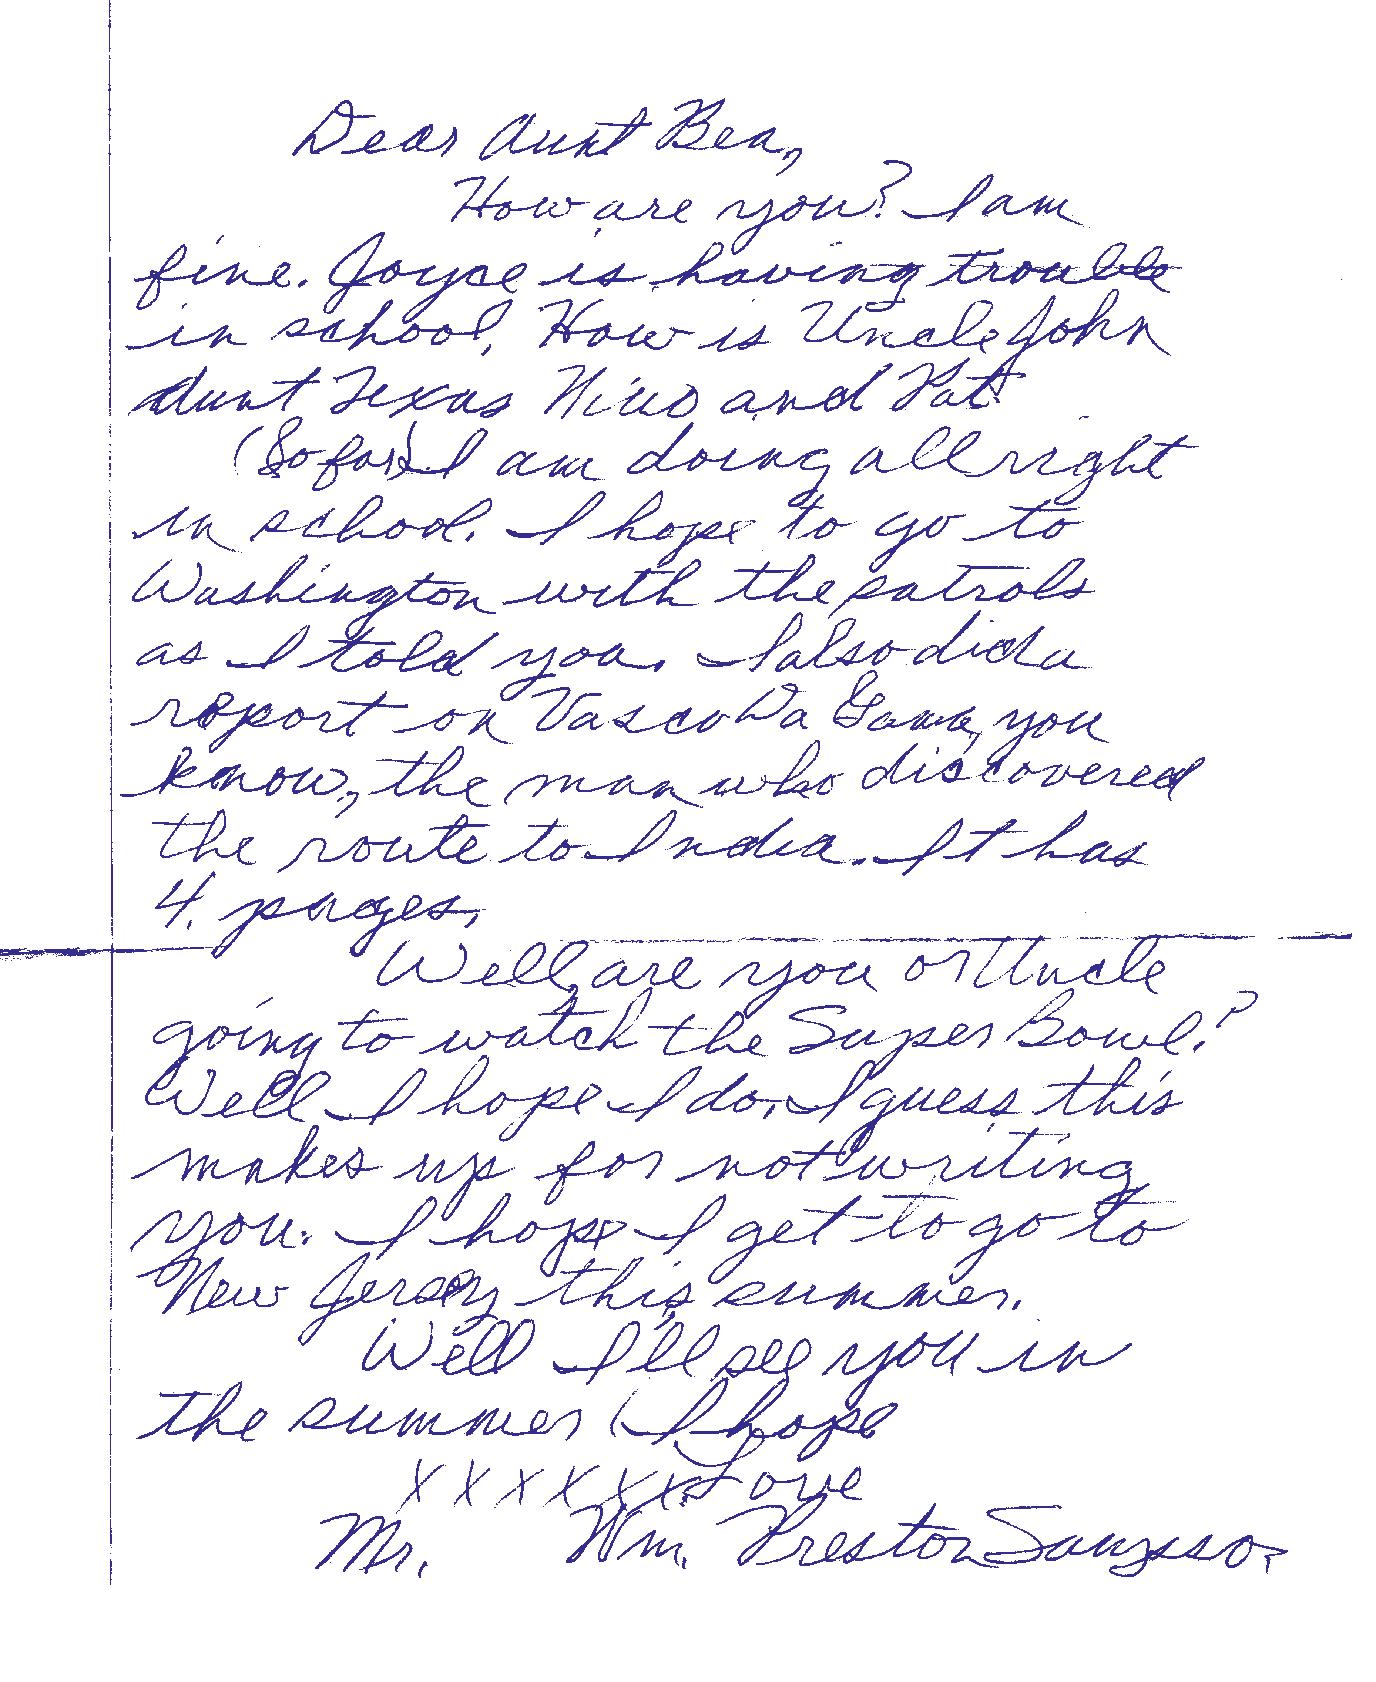 Dear Aunt Bea,
How are you? I am
fine. Joyce is having trouble
in school. How is Uncle John
Aunt Texas Nino and Pat
(So far) I am doing all right
in school. I hope to go to
Washington with the patrols
as I told you. I also did a
report on Vasco Da Gama, you
know, the man who discovered
the route to India. It has
4. pages.
Well, are you or Uncle
going to watch the Super Bowl?
Well I hope I do. I guess this
makes up for not writing
you. I hope I get to go to
New Jersey this summer.
Well I'll see you in
the summer (I hope
xxxxxx Love
Mr. Wm. Preston